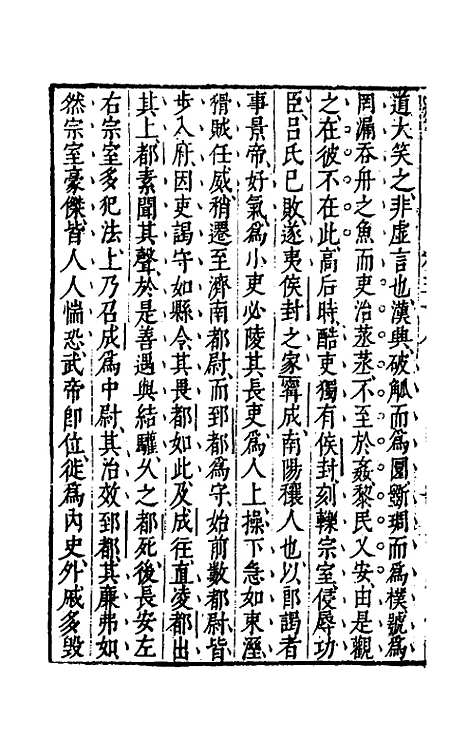 道大笑之非虛言也漢興破觚而爲圜斲琱而爲樸號爲
罔漏吞舟之魚而吏治蒸蒸不至於姦黎民乂安由是觀
之在彼不在此高后時酷吏獨有侯封刻轢宗室侵辱功
臣呂氏已敗遂夷侯封之家甯成南陽穰人也以郎謁者
事景帝好氣爲小吏必陵其長吏爲人上操下急如束溼
猾賊任威稍遷至濟南都尉而郅都爲守始前數都尉皆
步入府因吏謁守如縣令其畏都如此及成往直凌都出
其上都素聞其聲於是善遇與結驩久之都死後長安左
右宗室多犯法上乃召成爲中尉其治效郅都其廉弗如
然宗室豪傑皆人人惴恐武帝即位徙爲內史外戚多毀